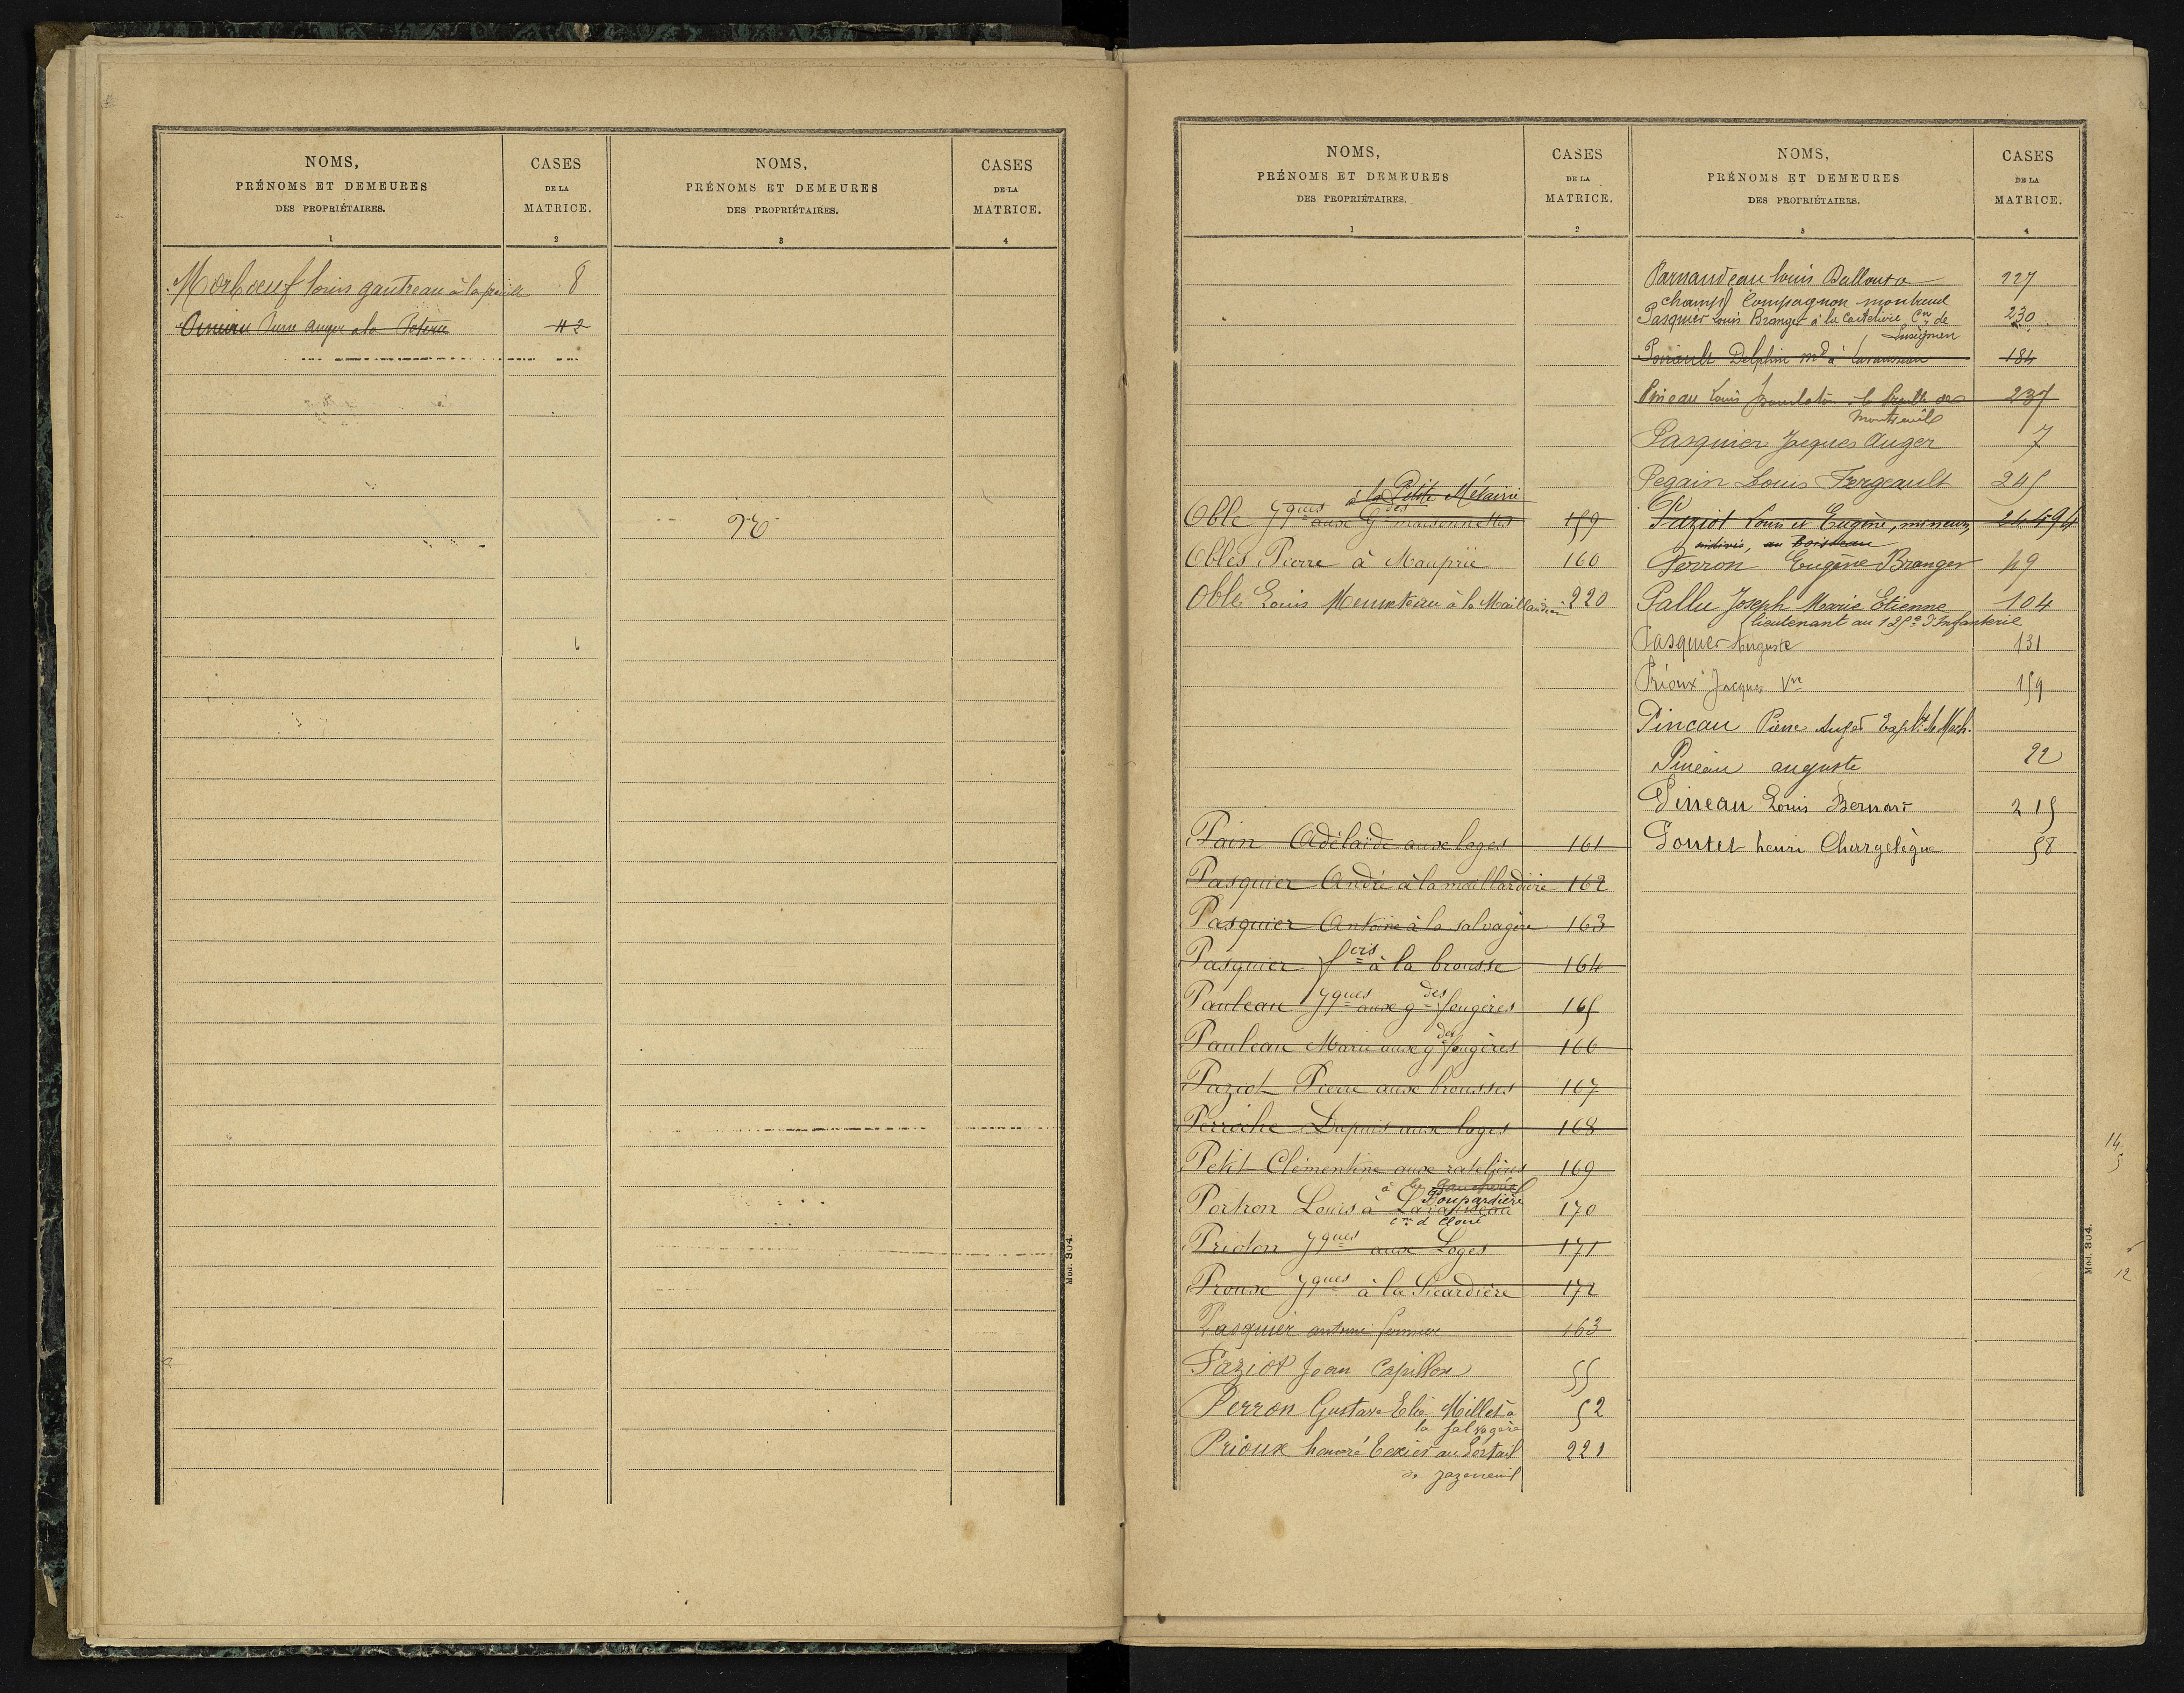 NOMS,
PRÉNOMS ET DEMEURES
DES PROPRIÉTAIRES.
1
CASES
DE LA
MATRICE.
2
NOMS,
PRÉNOMS ET DEMEURES
DES PROPRIÉTAIRES.
3
CASES
DE LA
MATRICE.
4
Morboeuf Louis gautreau à la 8
Pierre Auger à la Poterie 42
Mod. 304.
NOMS,
PRÉNOMS ET DEMEURES
DES PROPRIÉTAIRES.
1
CASES
DE LA
MATRICE.
2
à la Petite Métairie
Oble Jques aux Gdes maisonnettes 159
Obles Pierre à Mauprié 160
Oble Louis Meunteau à la Maillardière 220
Pain Adélaïde aux loges 161
Pasquier André à la maillardière 162
Pasquier Antoine à la salvagère 163
Pasquier fcois à la brousse 164
Pauleau Jques aux gdes fougères 165
Pauleau Marie aux gdes fougères 166
Paziot Pierre aux brousses 167
Perroche Dupuis aux loges 168
Petit Clémentine aux ratelières 169
à la Poupardière
Portron Louis à Lavausseau 170
cne d Cloué
Prioton Jques aux Loges 171
Proux Jques à la Sicardière 172
Pasquier antoine fermier 163
Paziot Jean Capillon 55
Perron Gustave Elie Millet à 52
la Salvagère
Prioux honoré Texier au Portail 221
de Jazeneuil
NOMS,
PRÉNOMS ET DEMEURES
DES PROPRIÉTAIRES.
3
CASES
DE LA
MATRICE.
4
Parnaudeau Louis Ballouta 227
champs Compagnon montreuil
Pasquier Louis Branger à la Cne de 230
Lusignan
Poirault Delphin md à Lavausseau 184
Pineau Louis 237
Montreuil
Pasquier Jacques Auger 7
Pegain Louis Fergeault 245
Paziot Louis et Eugène, mineurs, 244 94
indivis, au Boisseau
Perron Eugène Branger 49
Pallu Joseph Marie Etienne 104
lieutenant au 125e d'Infanterie
Pasquier Auguste 131
Prioux Jacques Vve 159
Pineau Pierre Auger Explt de Mach.
Pineau auguste 22
Pineau Louis Bernard 215
Poutet henri Chergelègue 58
14
5
Mod. 304.
12